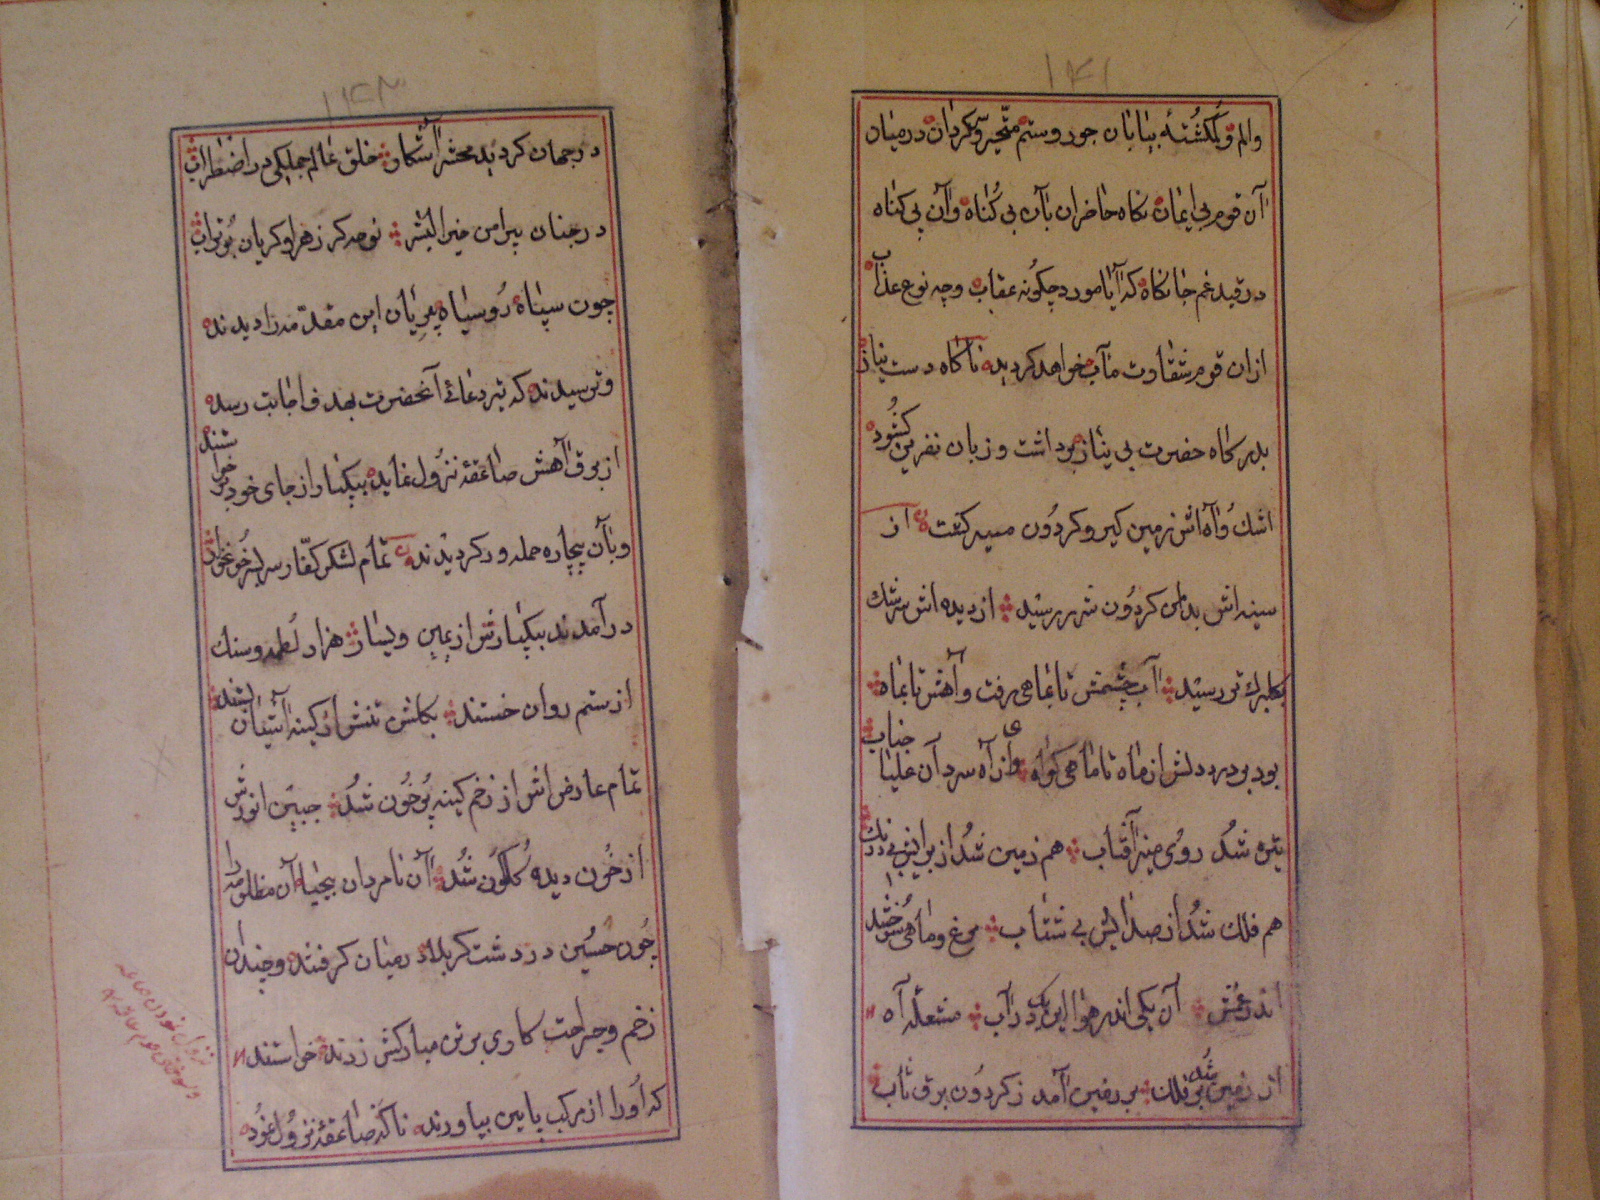 ۱۴۲
والم و گمگشتهٔ بیابان جور و ستم متحیر و سرگردان در میان
آن قوم بی ایمان نگاه حاضران بآن بی گناه وآن بی گناه
در قید غم جانکاه که آیا مورد چگونه عقاب وچه نوع عذاب
ازان قوم شقاوت مآب خواهد گردید ناگاه دست نیاز
بدرگاه حضرت بی نیاز برداشت و زبان نفرین گشود
اشک وآه اش زمین گیر و گردون مسیر گشت از
سینه اش بدامن گردون شرر رسید از دیده اش سرشک
بگلبرگ تر رسید آب چشمش تا بماهی رفت وآهش تا بماه
بود بر درد دلش از ماه تا ماهی گواه واز آه سرد آن علیا جناب
تیره شد روی منیر آفتاب هم زمین شد از برایش بی درنگ
هم فلک شد از صدایش بی شتاب مرغ و ماهی سوختند
اندر غمش آن یکی اندر هوا این یک در آب مشعل آه
از زمین شد بر فلک بر زمین آمد ز گردون برق تاب
۱۴۳
در جهان گردید محشر آشکار خلق عالم جملگی در اضطراب
در جنان پیرامن خیر البشر نوحه گر زهرا و گریان بوتراب
چون سپاه روسیاه بی پایان این مقدمه را دیدند
وترسیدند که تیر دعائے آنحضرت بهدف اجابت رسد
از برق آهش صاعقه نزول نماید بیکبار از جای خود برخواستند
وبآن بیچاره حمله ور گردیدند تمام لشکر کفار سر بسر خونخوار
در آمدند بیکبارش از یمین و یسار هزار لطمه و سنگ
از ستم روان خستند بگلشن تنش از کینه آشیان بستند
تمام عارض اش از زخم کینه پرخون شد جبین انورش
از خون دیده گلگون شد آن نامردان بیحیا آن مظلوم را
چون حسین در دشت کربلا در میان گرفتند وچندان
زخم وجراحت کاری بر تن مبارکش زدند خواستند
که اورا از مرکب پایین بیاورند ناگه صاعقه نزول نمود